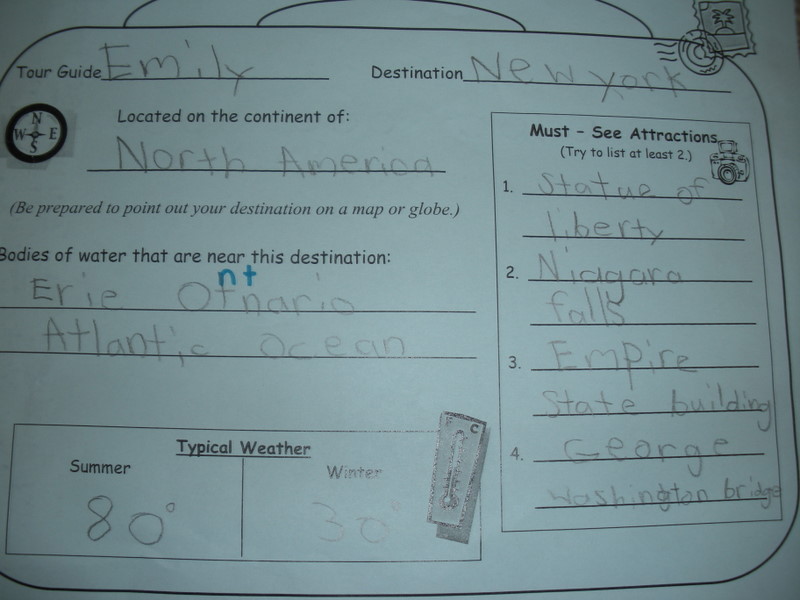 Tour Guide Emily
Destination New york
N
W E
S
Located on the continent of:
North America
(Be prepared to point out your destination on a map or globe.)
Bodies of water that are near this destination:
nt
Erie Otnario
Atlantic ocean
Must - See Attractions
(Try to list at least 2.)
1. Statue of
liberty
2. Niagara
falls
3. Empire
State building
4. George
washington bridge
Typical Weather
Summer
80°
Winter
30°
F C